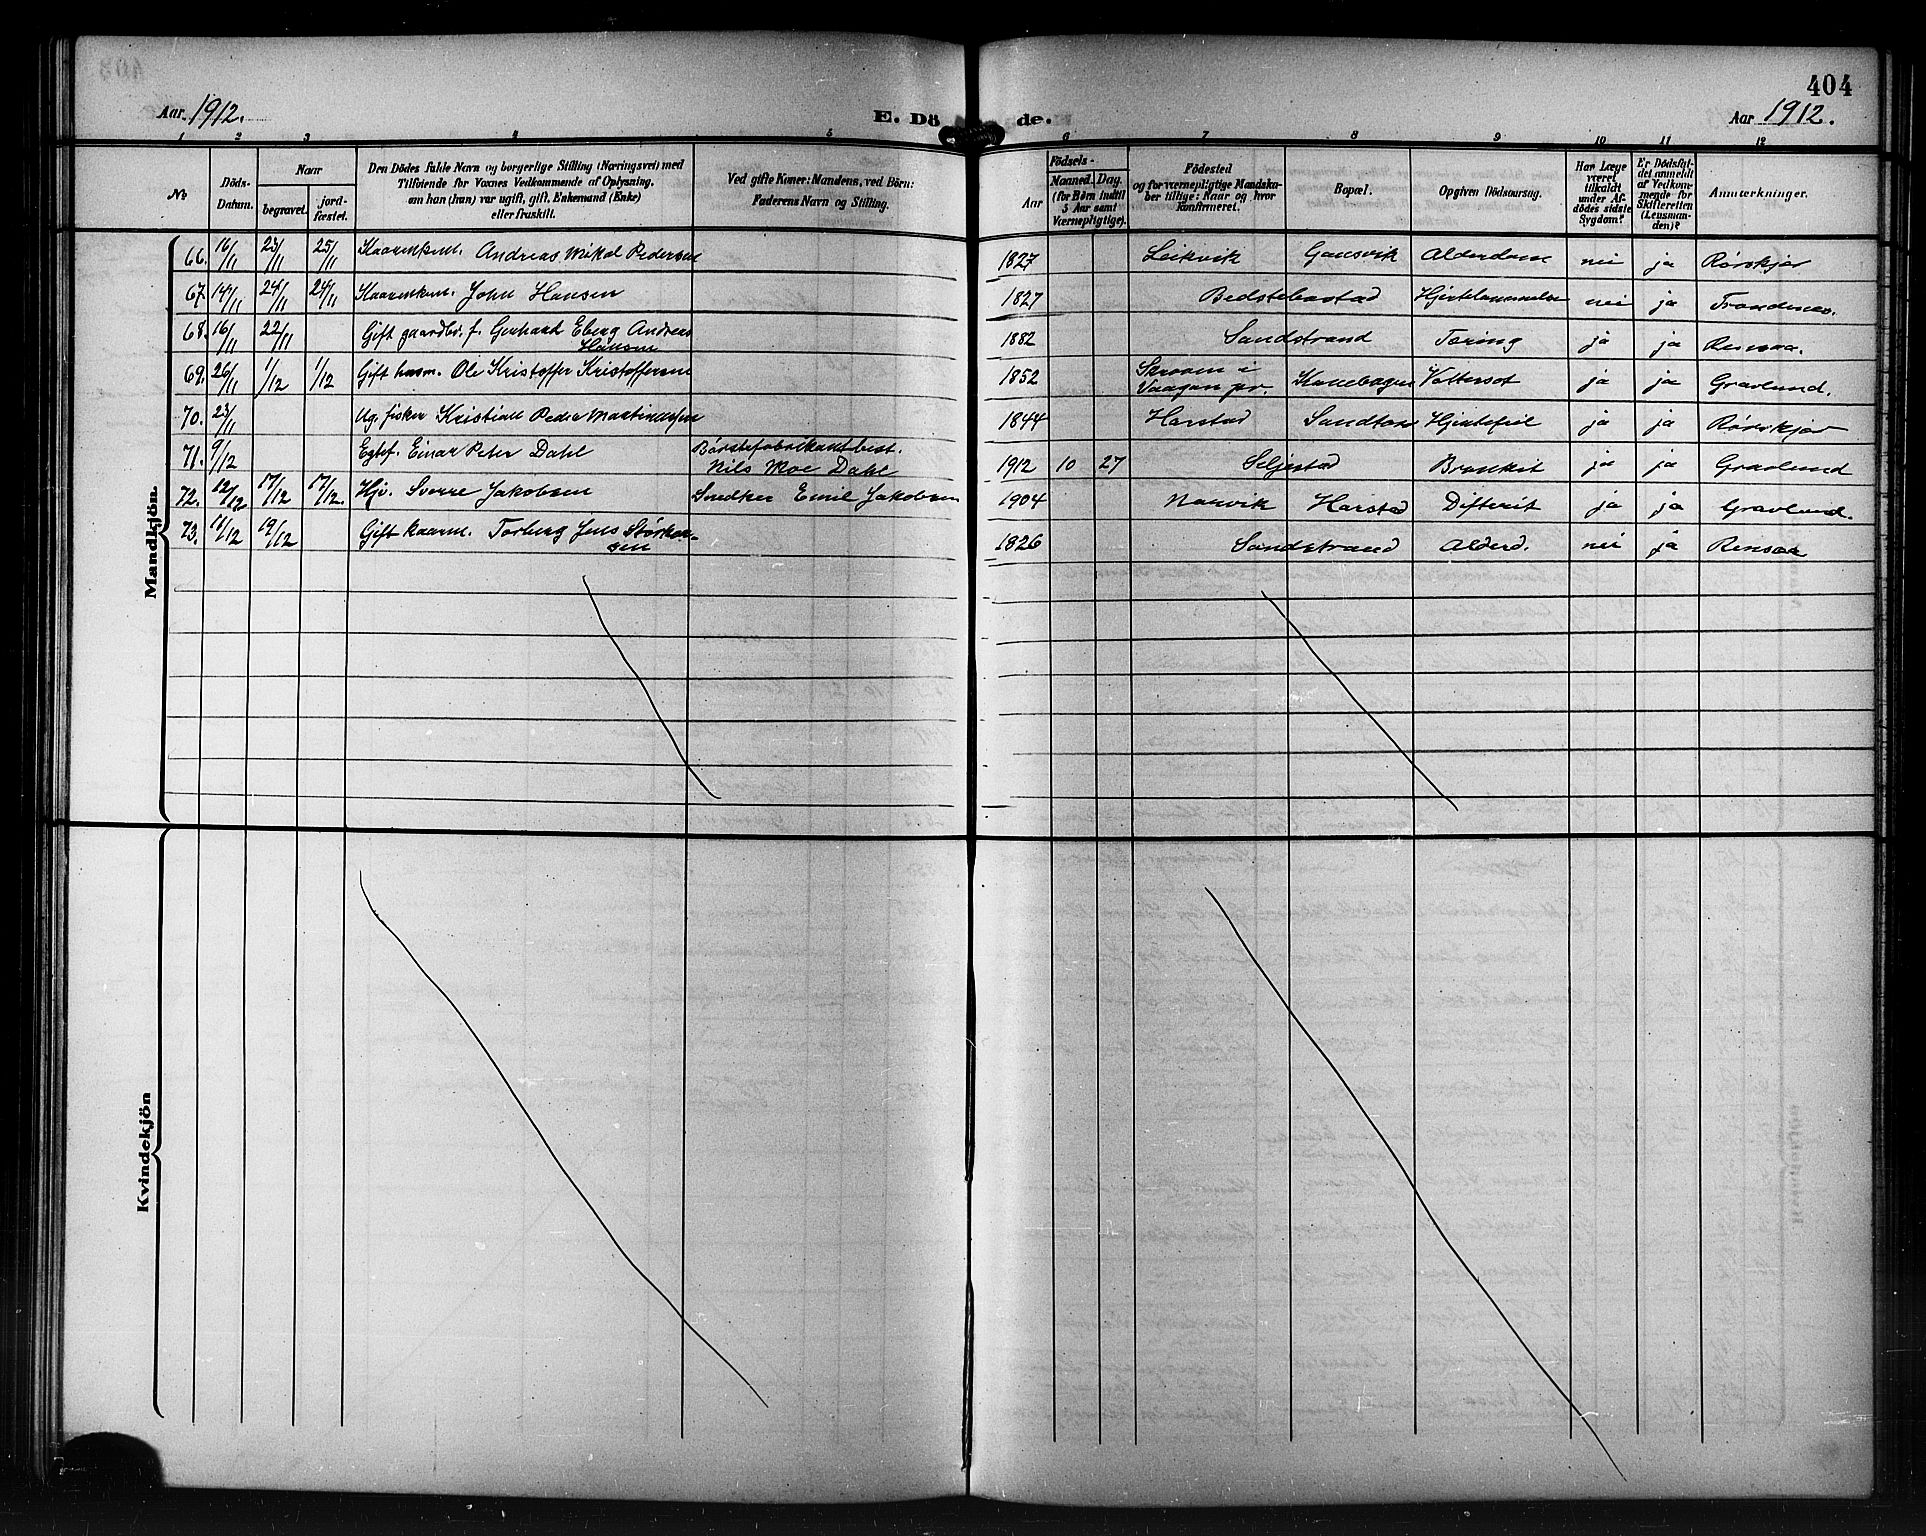 404
Aar 1912.
E. Döde.
Aar 1912.
1 2 3 4 5 6 7 8 9 10 11 12
No
Döds-Datum.
Naar
begravet.
jord-fæstet.
Den Dödes fulde Navn og borgerlige Stilling (Næringsvei) med
Tilföiende for Voxnes Vedkommende af Oplysning,
om han (hun) var ugift, gift, Enkemand (Enke)
eller fraskilt.
Ved gifte Koner: Mandens, ved Börn:
Faderens Navn og Stilling.
Födsels-
Aar
Maaned. Dag.
(for Börn indtil
5 Aar samt
Værnepligtige).
Födested
og for værnepligtige Mandska-
ber tillige: Naar og hvor
Konfirmeret.
Bopæl.
Opgiven Dödsaarsag.
Har Læge
været
tilkaldt
under Af-
dödes sidste
Sygdom?
Er Dödsfal-
det anmeldt
af Vedkom-
mende for
Skifteretten
(Lensman-
den)?
Anmærkninger.
Mandkjön.
66. 16/11 23/11 25/11 Kaarenkem. Andreas Mikal Pedersen 1827 Leikvik Gansvik Alderdom nei ja Rørskjær
67. 14/11 24/11 24/11 Kaarenkem. John Hansen 1827 Bedstebostad Hjertelammelse nei ja Trondenes.
68. 16/11 22/11 Gift gaardbr. f. Gerhard Eberg Andreas
Hansen 1882 Sandstrand Tæring ja ja Rensaa.
69. 26/11 1/12 1/12 Gift husm. Ole Kristoffer Kristoffersen 1852 Skroven i
Vaagan pr. Kanebogen Vattersot ja ja Gravlund.
70. 23/11 Ug. fisker Kristian Peder Martinussen 1844 Harstad Sandtorv Hjertefeil ja ja Rørskjær
71. 9/12 Egtef. Einar Peter Dahl Børstefabrikantbest.
Nils Moe Dahl 1912 10 27 Seljestad Bronkit ja ja Gravlund
72. 12/12 17/12 17/12. Hjv. Sverre Jakobsen Snedker Emil Jakobsen 1904 Narvik Harstad Difterit ja ja Gravlund.
73. 11/12 19/12 Gift kaarm. Torberg Jens Störker-
sen 1826 Sandstrand Alderd. nei ja Rensaa
Kvindekjön